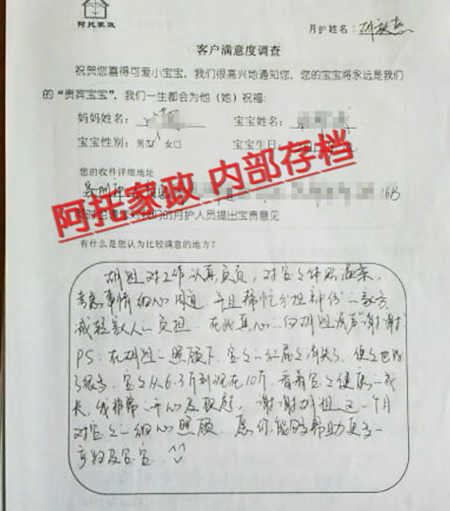 阿托家政
月护姓名：胡
客户满意度调查
祝贺您喜得可爱小宝宝，我们很高兴地通知您，您的宝宝将永远是我们
的“贵宾宝宝”，我们一生都会为他（她）祝福：
妈妈姓名：
宝宝姓名：
宝宝性别：男 女□
宝宝生日
您的收件详细地址
6B
阿托家政 内部存档
我们的月护人员提出宝贵意见
有什么是您认为比较满意的地方？
胡姐对工作认真负责，对宝宝体贴
考虑事情细心周道，并且帮忙分担部份家务
减轻家人负担，在此真心向胡姐说声“谢谢”
PS：在胡姐照顾下，宝宝红屁屁消失了，
了很多，宝宝从6.3斤到现在10斤，看着宝宝健康成
长，我非常开心及，谢谢胡姐这一个月
对宝宝细心照顾，愿你能够帮助更多
产妇及宝宝